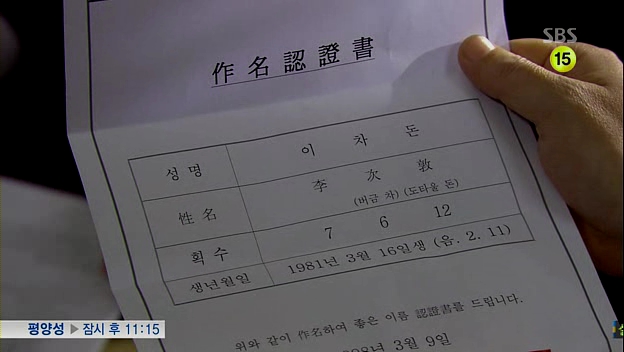 SBS
15
作名認證書
성명 이차돈
性名 李次敦
(버금 차) (도타울 돈)
획수 7 6 12
생년월일 1981년 3월 16일생 (음. 2. 11)
위와 같이 作名하여 좋은 이름 認證書를 드립니다.
3월 9일
평양성 ▶ 잠시 후 11:15